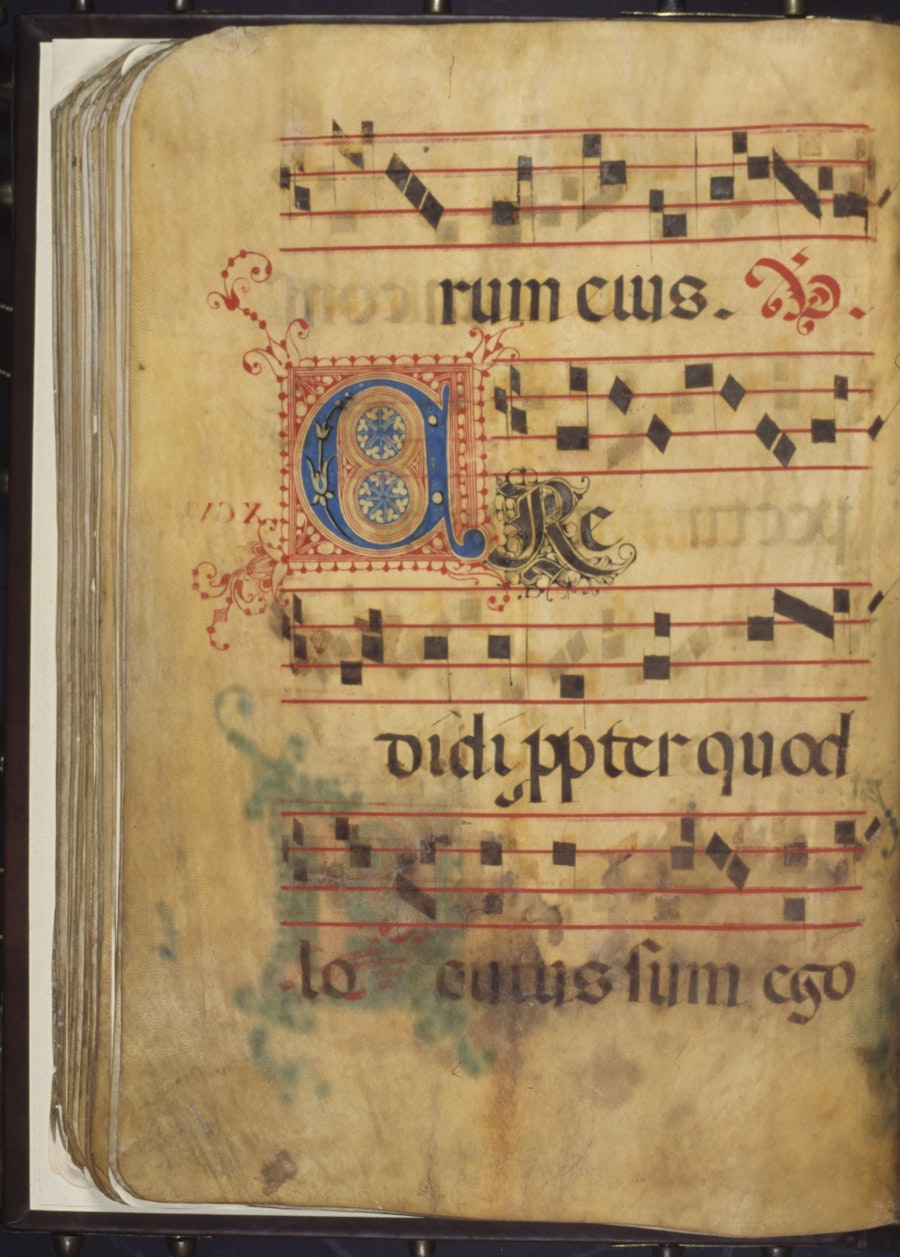 rum eius.
CRe
didi ppter quod
lo cutus ſum ego